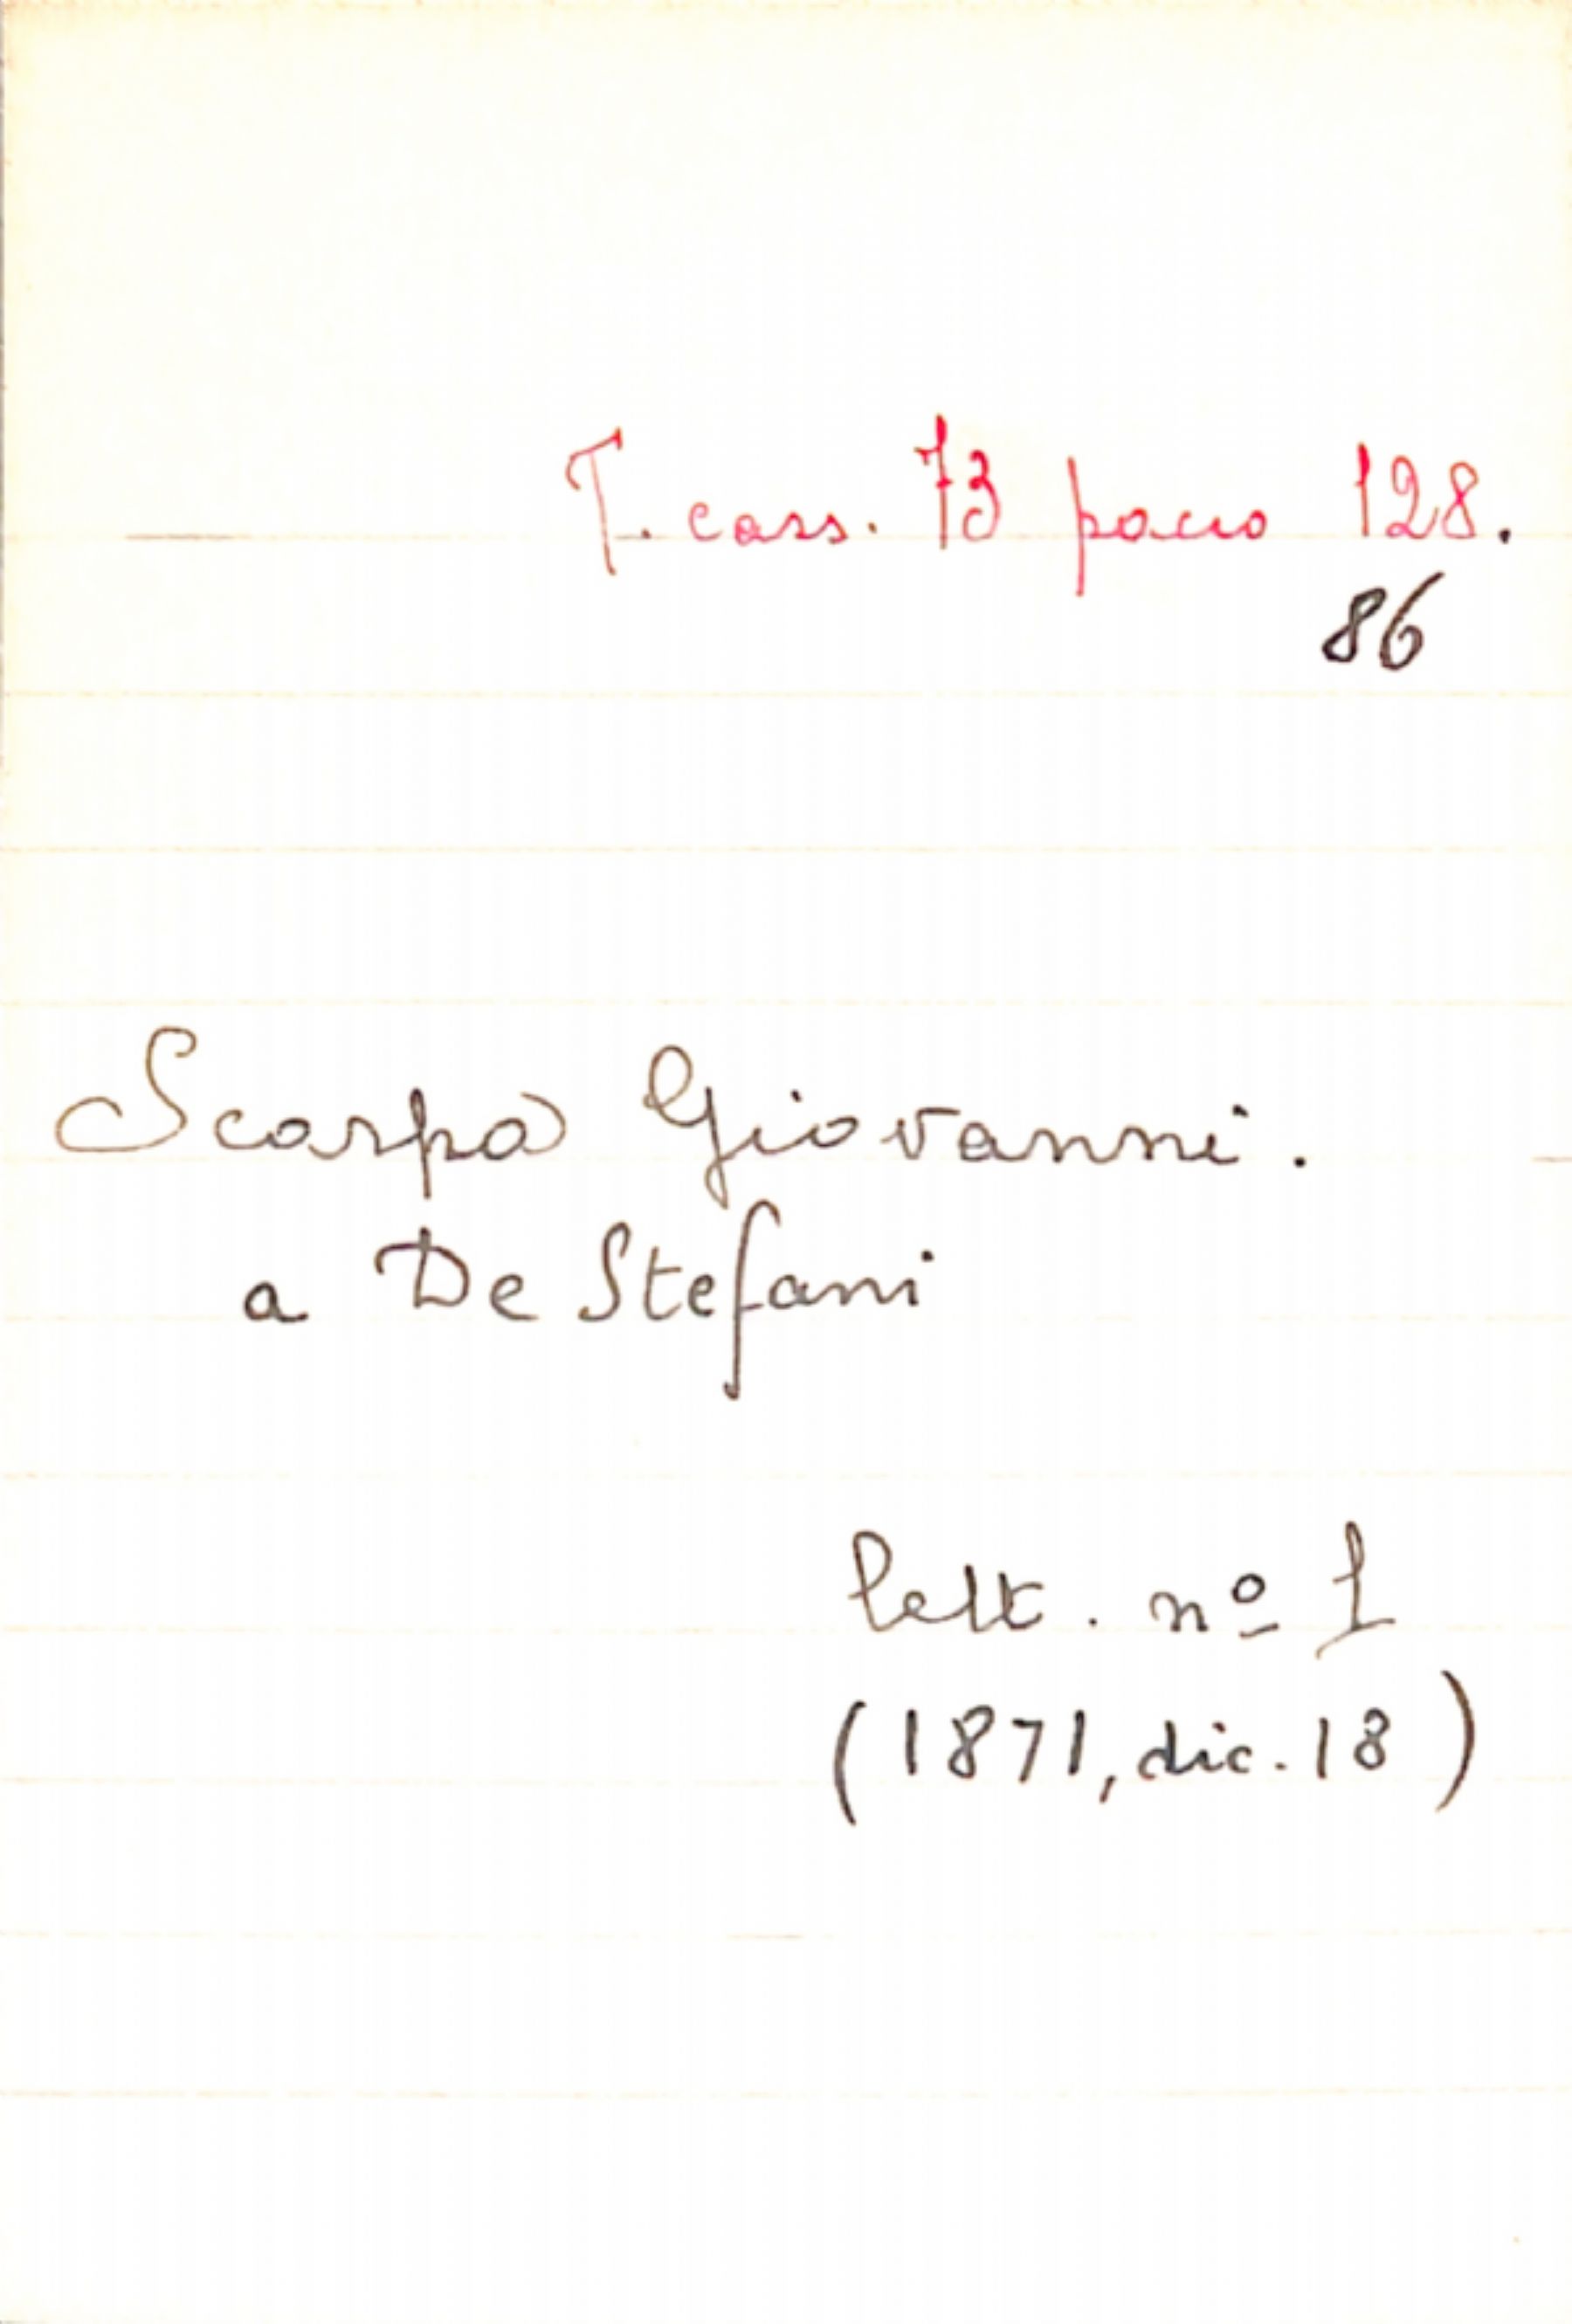 T. cass. 73 pacco 128.
86
Scarpa Giovanni.
a De Stefani
lett. nº 1
(1871, dic. 18)